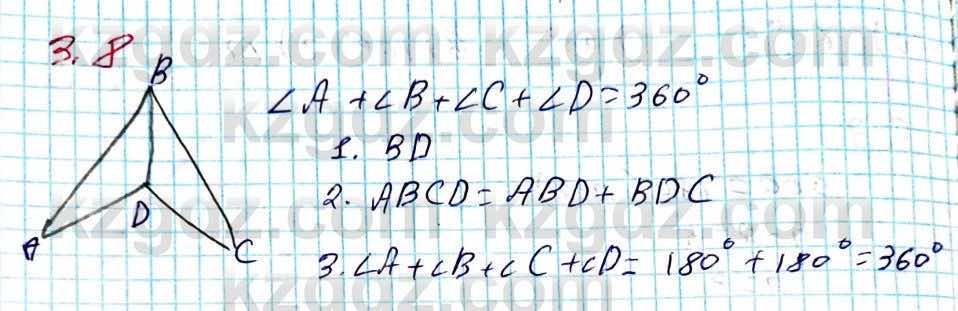 3.8
B
∠A + ∠B + ∠C + ∠D = 360°
1. BD
2. ABCD = ABD + BDC
D
A
C
3. ∠A + ∠B + ∠C + ∠D = 180° + 180° = 360°
kzgdz.com kzgdz.com
kzgdz.com
kzgdz.com kzgdz.com
kzgdz.com